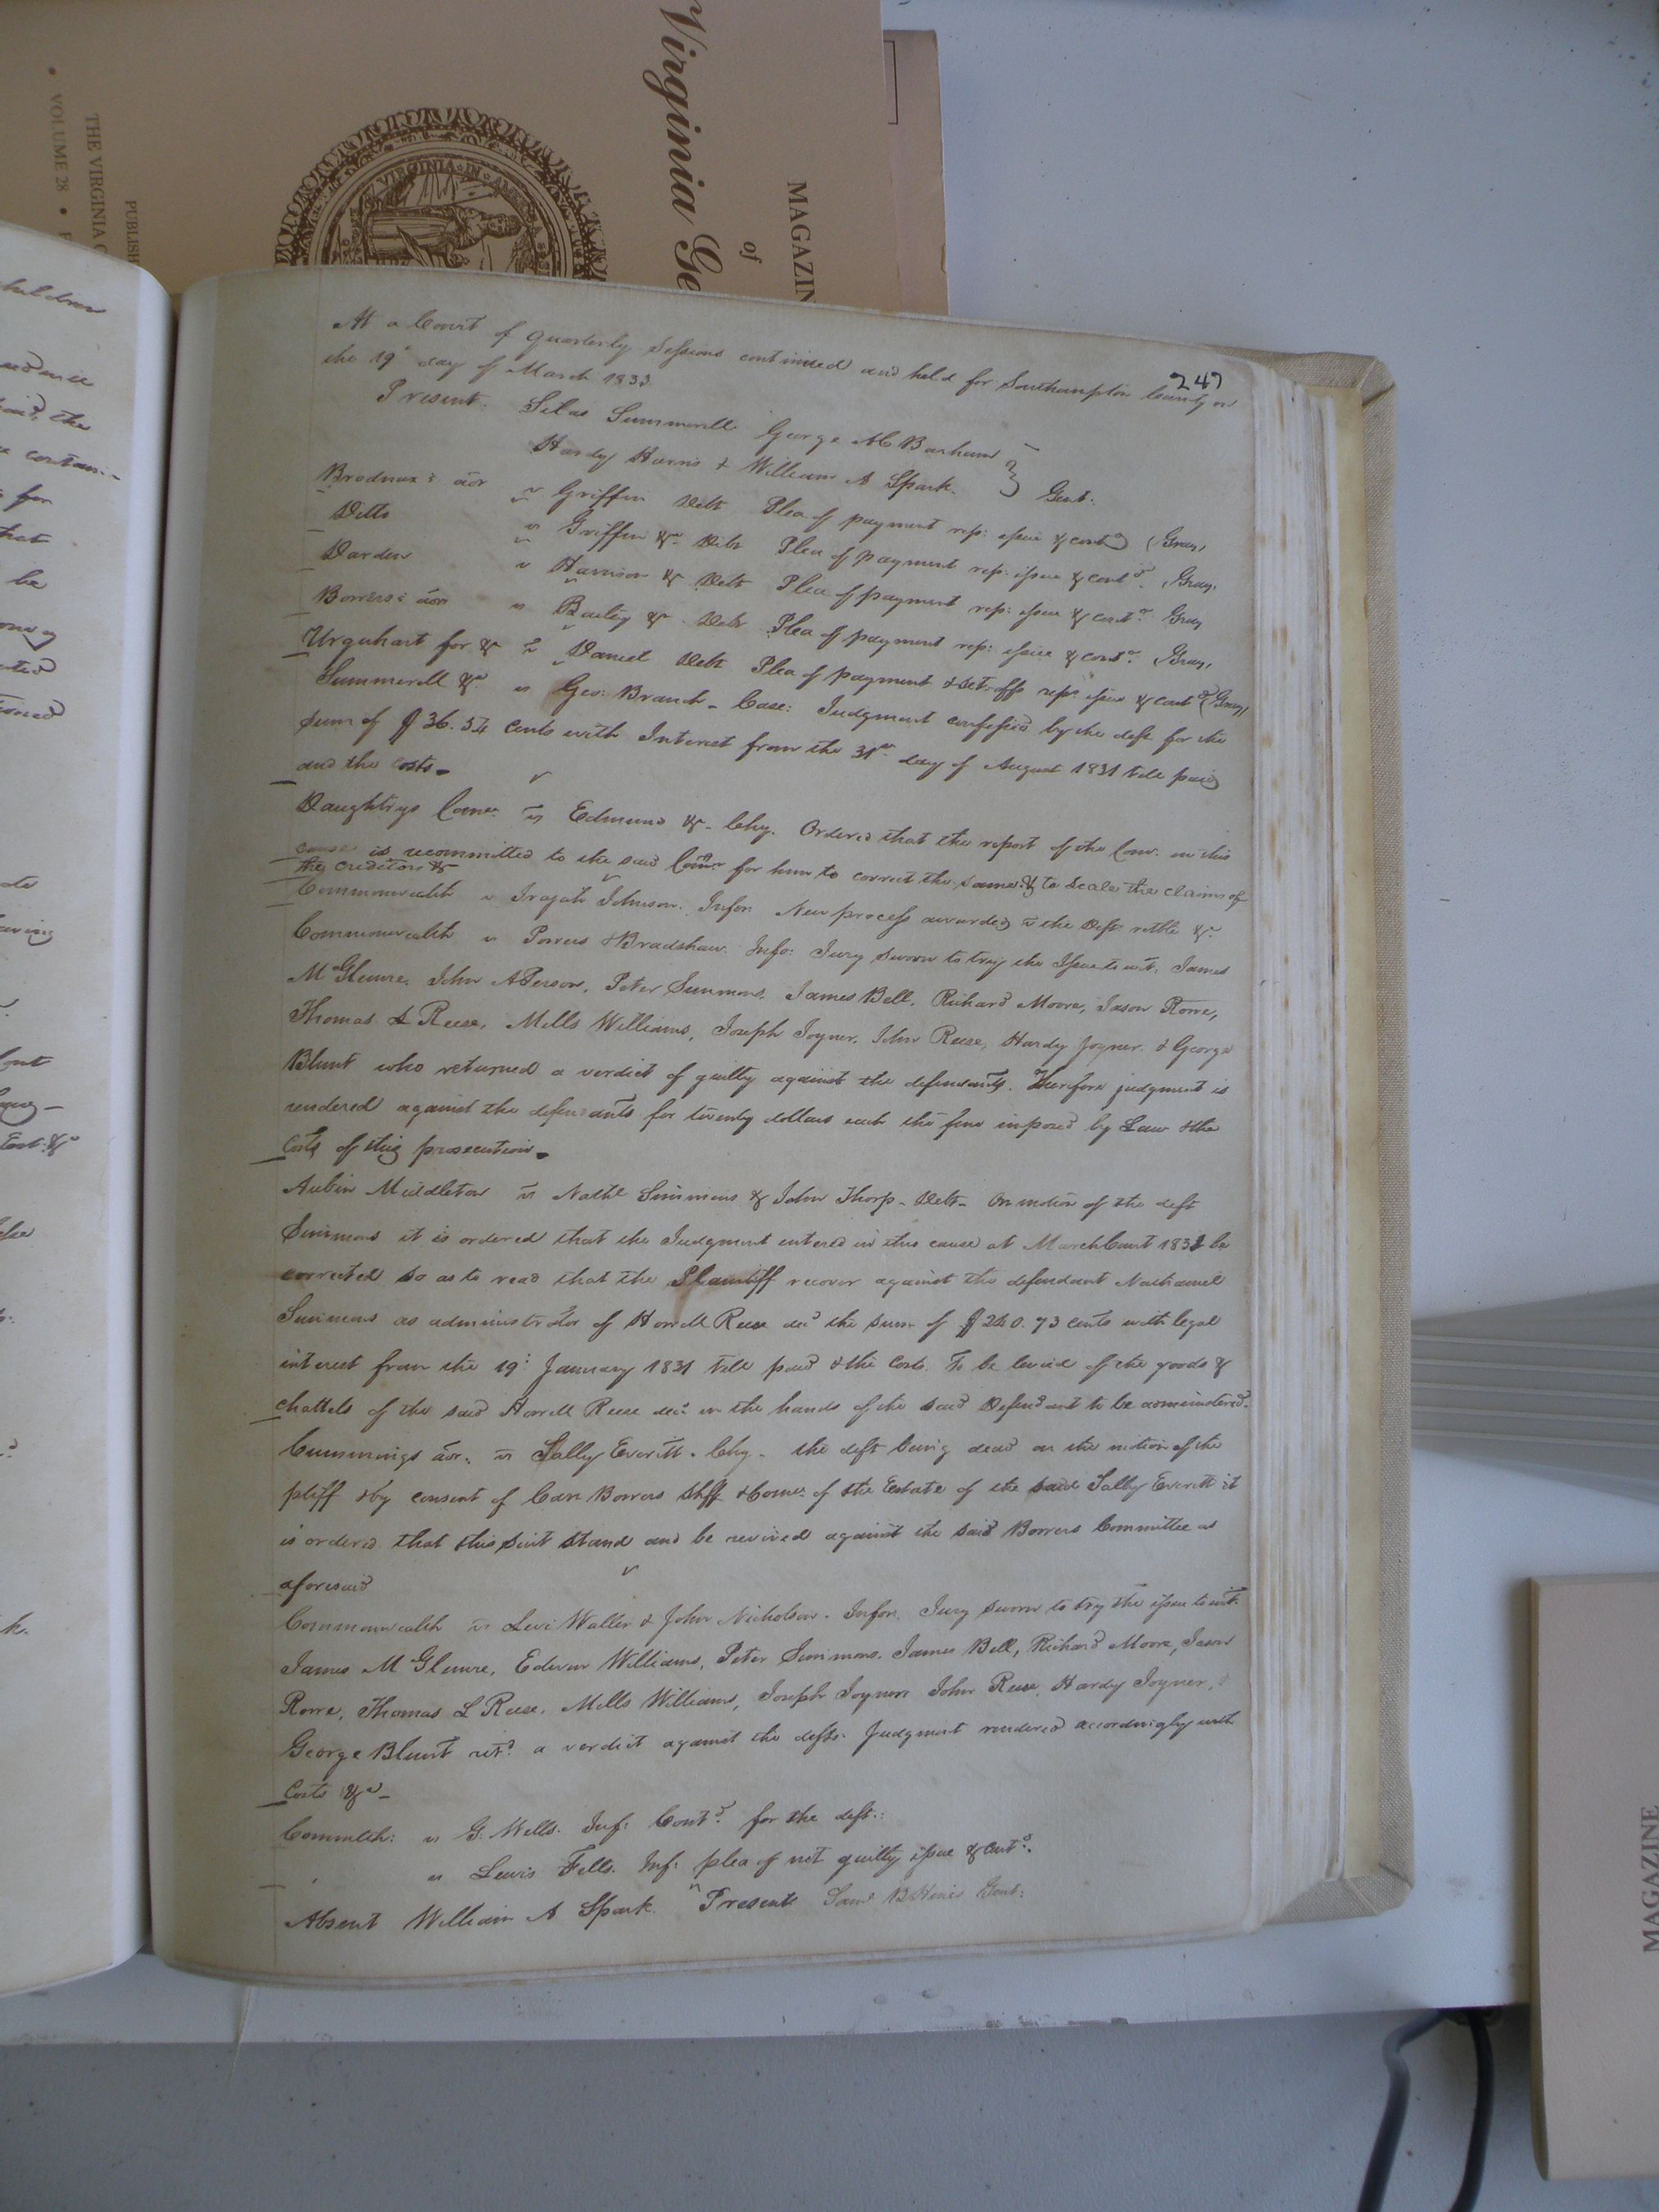 Virginia Ge
of
MAGAZIN
PUBLISH
THE VIRGINIA
VOLUME 28
VIRGINIA
247
At a Court of Quarterly Sessions continued and held for Southampton County on
the 19th day of March 1833
Present. Silas Summerell George
Hardy Harris & William A Spark. Gent.
vs Griffin Debt Plea of payment rep: issue & contd (Gray,
Ditto vs Griffin &c. Debt Plea of payment rep: issue & contd. (Gray,
Darden vs Harrison & Debt Plea of payment rep: issue & contd. Gray
vs Bailey &c. Debt Plea of payment rep: issue & contd. (Gray,
Urquhart for &c vs Daniel Debt Plea of payment & setoffs rep: issue & contd (Gray,
Summerell &c. vs Geo: Branch - Case: Judgment confessed by the deft for the
sum of $36.54 Cents with Interest from the 31st day of August 1831 till paid
and the Costs.
Daughtrys Comr. vs Edmund &c. Chy. Ordered that the report of the Comr. in this
cause is recommitted to the said Comr for him to correct the same & to scale the claims of
the creditors &c
Commonwealth v Johnson. Infor. New process awarded vs the Deft &c.
Commonwealth vs Porrers & Bradshaw. Info: Jury sworn to try the Issue to wit: James
John Peter Simmons, James Bell, Richard Moore, Jason Rorre,
Thomas L Reese, Mills Williams, Joseph Joyner, John Reese, Hardy Joyner & George
Blunt who returned a verdict of guilty against the defendants. Therefore judgment is
rendered against the defendants for twenty dollars each the fine imposed by Law & the
Costs of this prosecution.
Middleton vs Nathl Simmons & John Thorp - Debt - On motion of the deft
Simmons it is ordered that the Judgment entered in this cause at March Court 1832 be
corrected so as to read that the Plaintiff recover against the defendant Nathaniel
Simmons as administrator of Reese decd the sum of $240.73 cents with legal
interest from the 19th January 1831 till paid & the Costs. To be levied of the goods &
chattels of the said Reese decd. in the hands of the said Defendant to be administered.
Cummings vs Sally Everitt. Chy. the deft being dead on the motion of the
pltff & by consent of Carr Borrers Shff & Come. of the Estate of the said Sally Everitt it
is ordered that this suit stand and be revived against the said Borrers Committee as
aforesaid
Commonwealth vs Levi Waller & John Nicholson. Infor. Jury sworn to try the issue to wit.
James Edwin Williams, Peter Simmons, James Bell, Richard Moore, Jason
Rorre, Thomas L Reese, Mills Williams, Joseph Joyner John Reese, Hardy Joyner, &
George Blunt retd. a verdict against the defts. Judgment rendered accordingly with
Costs &c-
Commlth: vs G. Wells. Inf: Contd. for the deft.:
vs Lewis Felts. Inf: plea of not guilty issue & contd.
Absent William A Spark. Present Saml B Hines Gent:
MAGAZINE